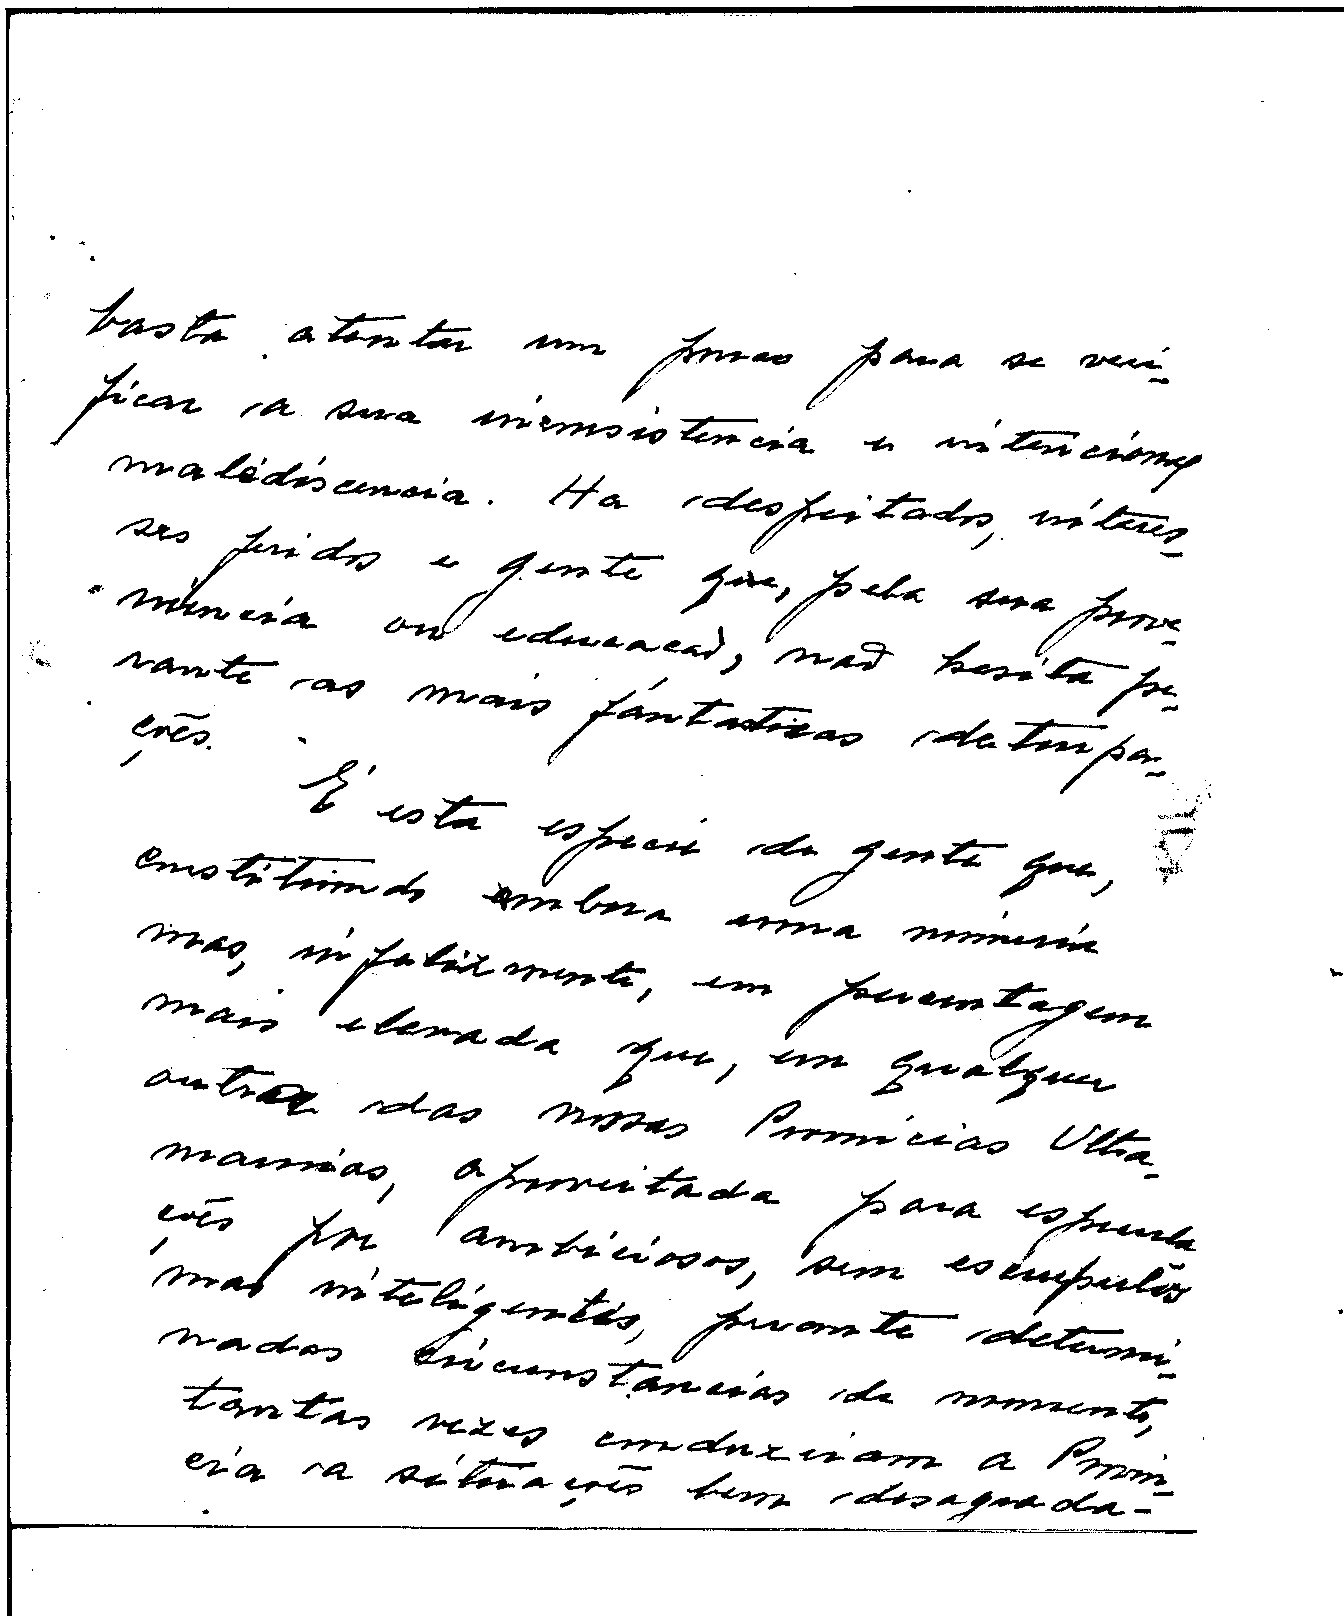 basta atentar um pouco para se veri-
ficar a sua inconsistencia e intencional
maledicencia. Ha despeitados, interes-
ses feridos e gente que, pela sua prove-
niencia ou educação, não hesita pe-
rante as mais fantasticas deturpa-
ções.
É esta especie de gente que,
constituindo embora uma minoria
mas, infelizmente, em percentagem
mais elevada que, em qualquer
outra das nossas Provincias Ultra-
marinas, aproveitada para especula
ções por ambiciosos, sem escrupulos
mas inteligentes, perante determi-
nadas circunstancias de momento,
tantas vezes conduziram a Provin-
cia a situações bem desagrada-